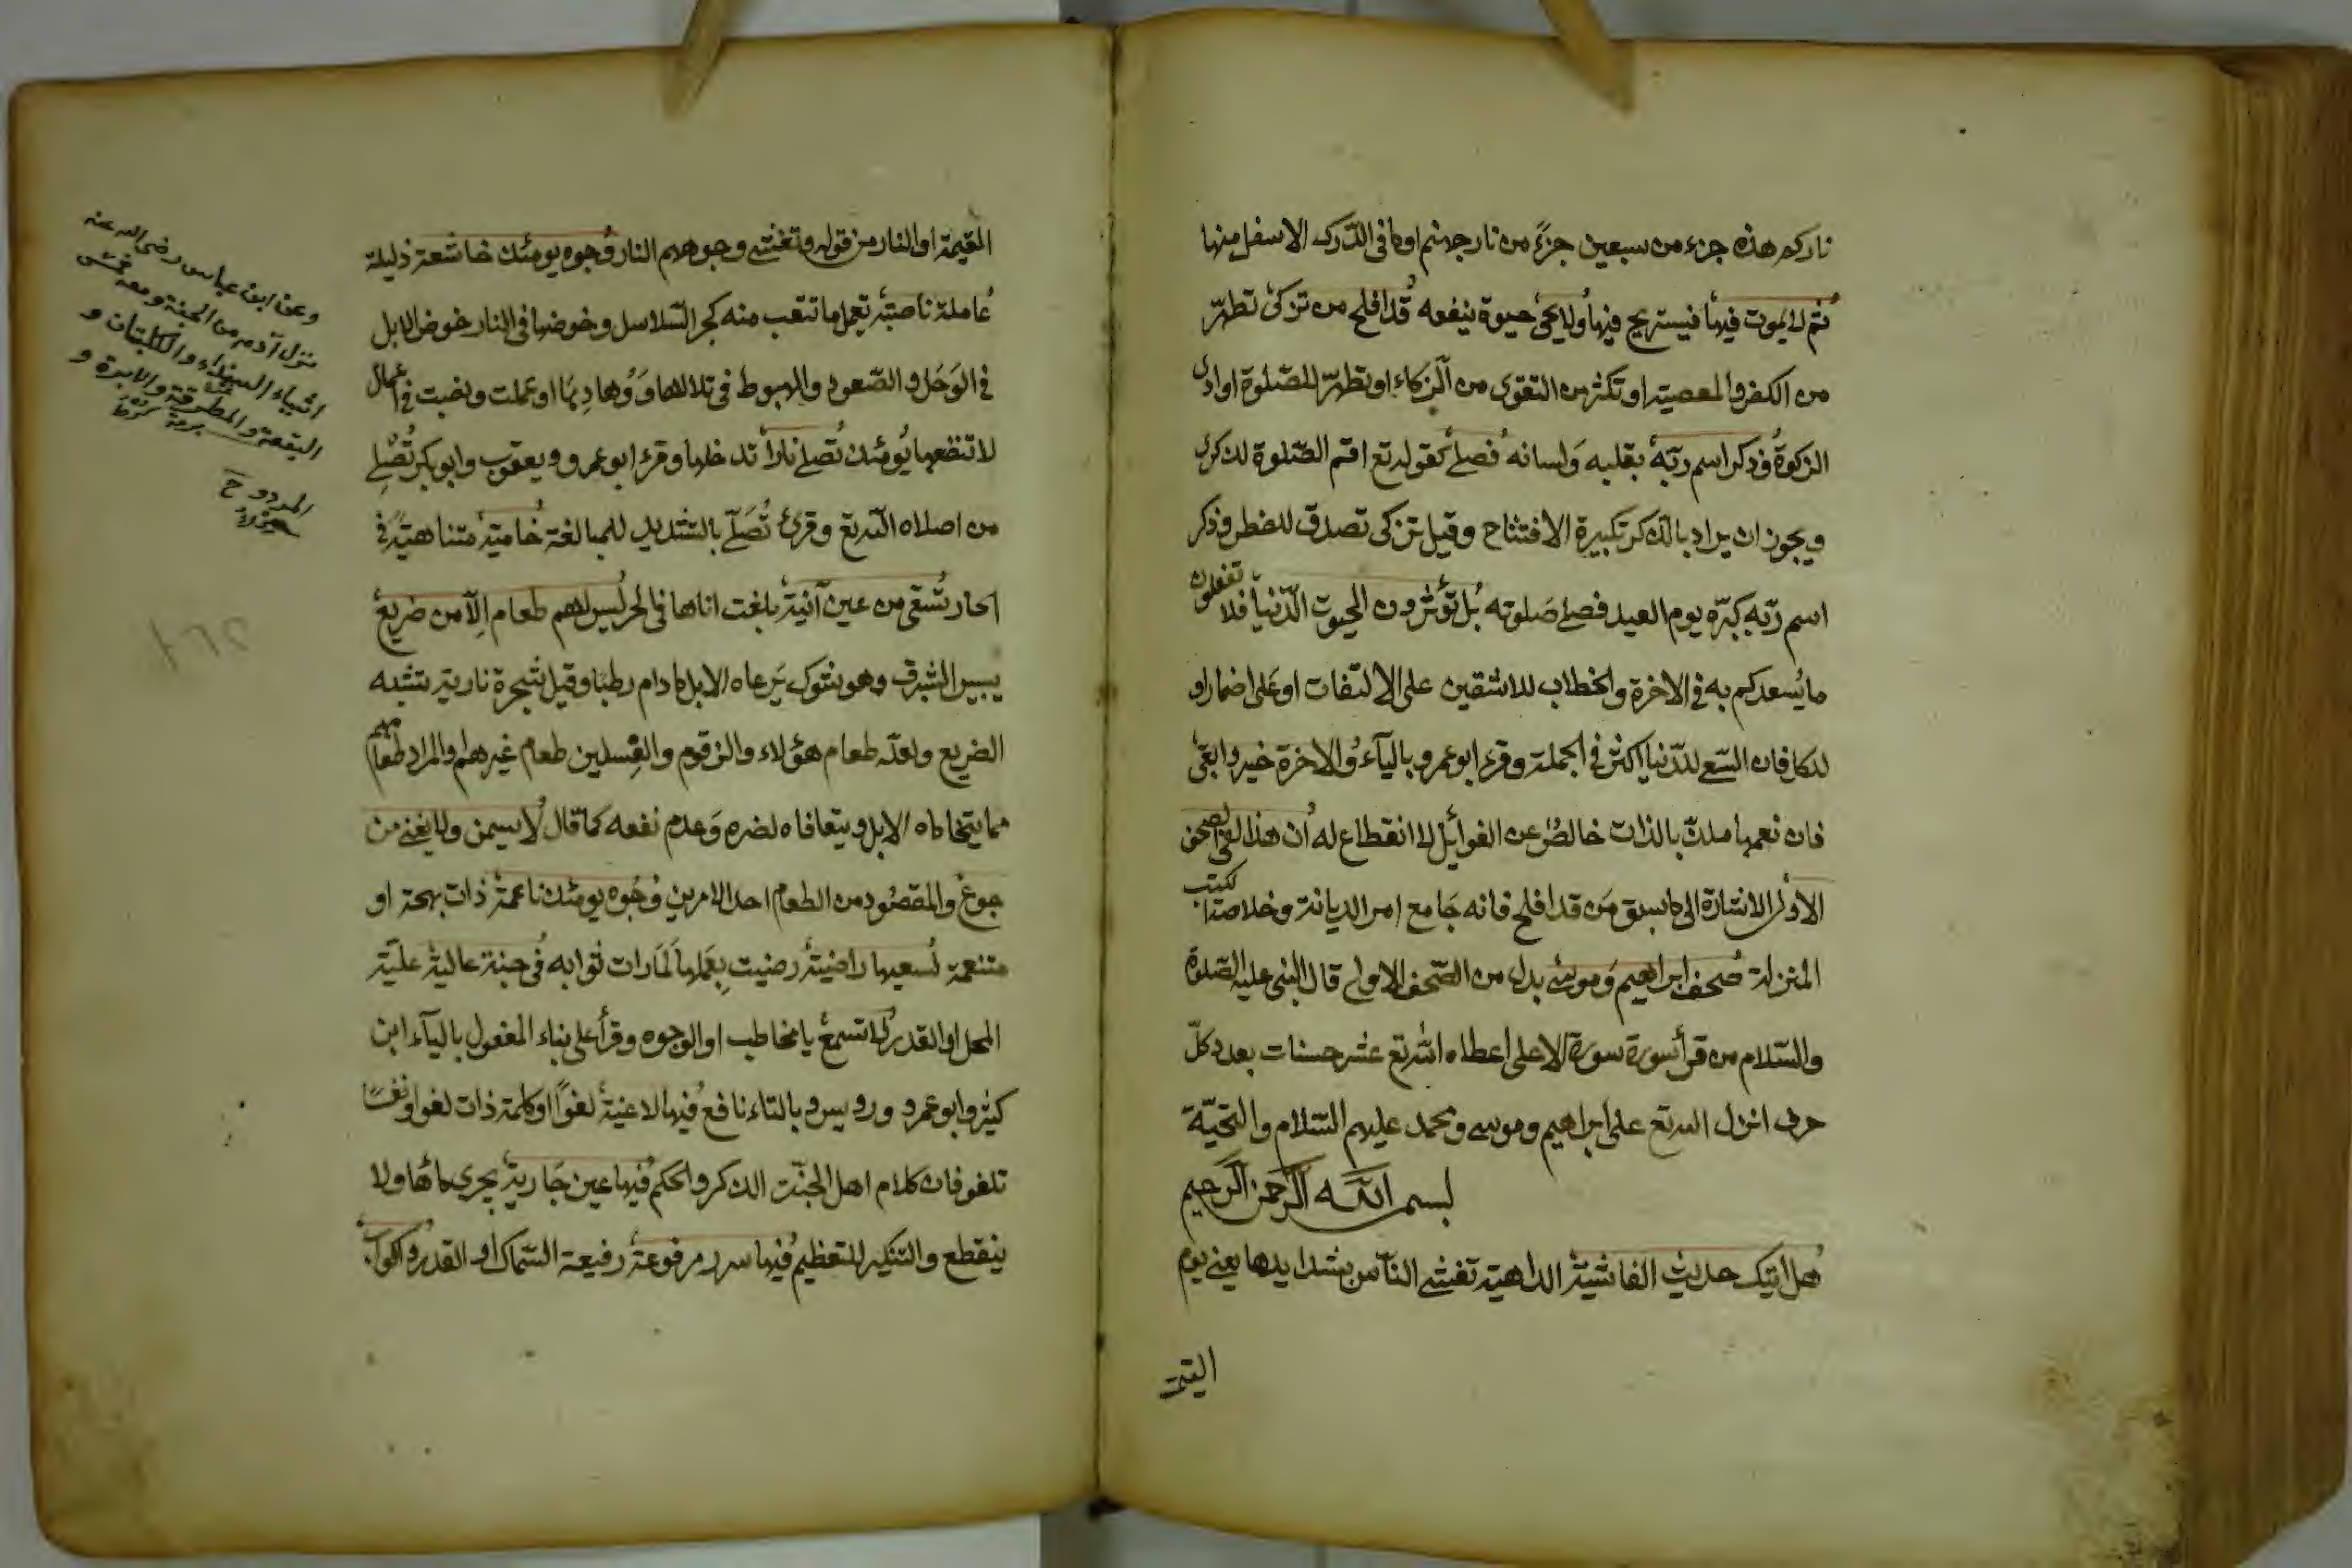 ناركم هذه جزء من سبعين جزءً من نار جهنم او ما في الدّرك الاسفل منها
ثم لا يموت فيها فيستريح فيها ولا يحيى حيوة ينفعه قد افلح من تزكى تطهّر
من الكفر والمعصية او تكثر من التقوى من الزكاء او تطهّر للصّلوة او ادى
الزكوة وذكر اسم ربّه بقلبه ولسانه فصلى كقوله تع اقم الصّلوة لذكرى
ويجوز ان يراد بالذكر تكبيرة الافتتاح وقيل تزكى تصدق للفطر وذكر
اسم ربّه كبّره يوم العيد فصلى صلوته بل تؤثرون الحيوة الدّنيا فلا تفعلون
ما يُسعدكم به في الاخرة والخطاب للاشقين على الالتفات او على اضمار او
للكل فان السّعى للدّنيا اكثر في الجملة وقرء ابو عمرو بالياء والاخرة خير وابقى
فان نعمها ملذّ بالذات خالصٌ عن الغوائل لا انقطاع له ان هذا لفى الصحف
الاولى الاشارة الى ما سبق من قد افلح فانه جامع امر الديانة وخلاصة الكتب
المنزلة صحف ابراهيم وموسى بدل من الصّحف الاولى قال النبى عليه الصّلوة
والسّلام من قرأ سورة سورة الاعلى اعطاه الله تع عشر حسنات بعدد كلّ
حرف انزل الله تع على ابراهيم وموسى ومحمد عليهم السّلام والتحيّة
بسم الله الرحمن الرحيم
هل اتيك حديث الغاشية الداهية تغشى النّاس بشدايدها يعنى يوم
القيمة
القيمة او النار من قوله وتغشى وجوههم النار وجوه يومئذ خاشعة ذليلة
عاملة ناصبة تعمل ما تتعب منه كجر السّلاسل وخوضها في النار خوض الابل
في الوَحَل والصّعود والهبوط في تلالها وَوُهادِها او عملت ونصبت في اعمال
لا تنفعها يومئذ تُصلى ناراً تدخلها وقرء ابو عمرو ويعقوب وابو بكر تُصْلى
من اصلاه الله تع وقرئ تُصَلّى بالتشديد للمبالغة حامية متناهيةً في
الحار تسقى من عين آنية بلغت اناها في الحر ليس لهم طعام إلّا من ضريع
يبيس الشبرق وهو شوك يَرعاه الابل ما دام رطبا وقيل شجرة نارية تشبه
الضريع ولعلّه طعام هؤلاء والزقوم والغِسلين طعام غيرهم والمراد طعامهم
مما يتحاماه الابل ويتعافاه لضره وَعدم نفعه كما قال لا يسمن ولا يغنى من
جوع والمقصُود من الطعام احد الامرين وُجوه يومئذ ناعمة ذات بهجة او
متنعمة لسعيها راضية رضيت بِعَملها لَمّا رات ثوابه في جنة عالية عليّة
المحل او القدر لا تسمع يا مخاطب او الوجوه وقرأ على بناء المفعول بالياء ابن
كثير وابو عمرو ورويس وبالتاء نافع فيها لاغية لغواً او كلمة ذات لغو او نفسًا
تلغو فان كلام اهل الجنّة الذكر والحكم فيها عين جارية يجرى ماؤها ولا
ينقطع والتنكير للتعظيم فيها سرر مرفوعة رفيعة السّمك او القدر واكواب
وعن ابن عباس رضى الله عنه
نزل آدم من الجنة ومعه خمسة
اشياء السندان والكلبتان و
الميقعة والمطرقة والابرة و